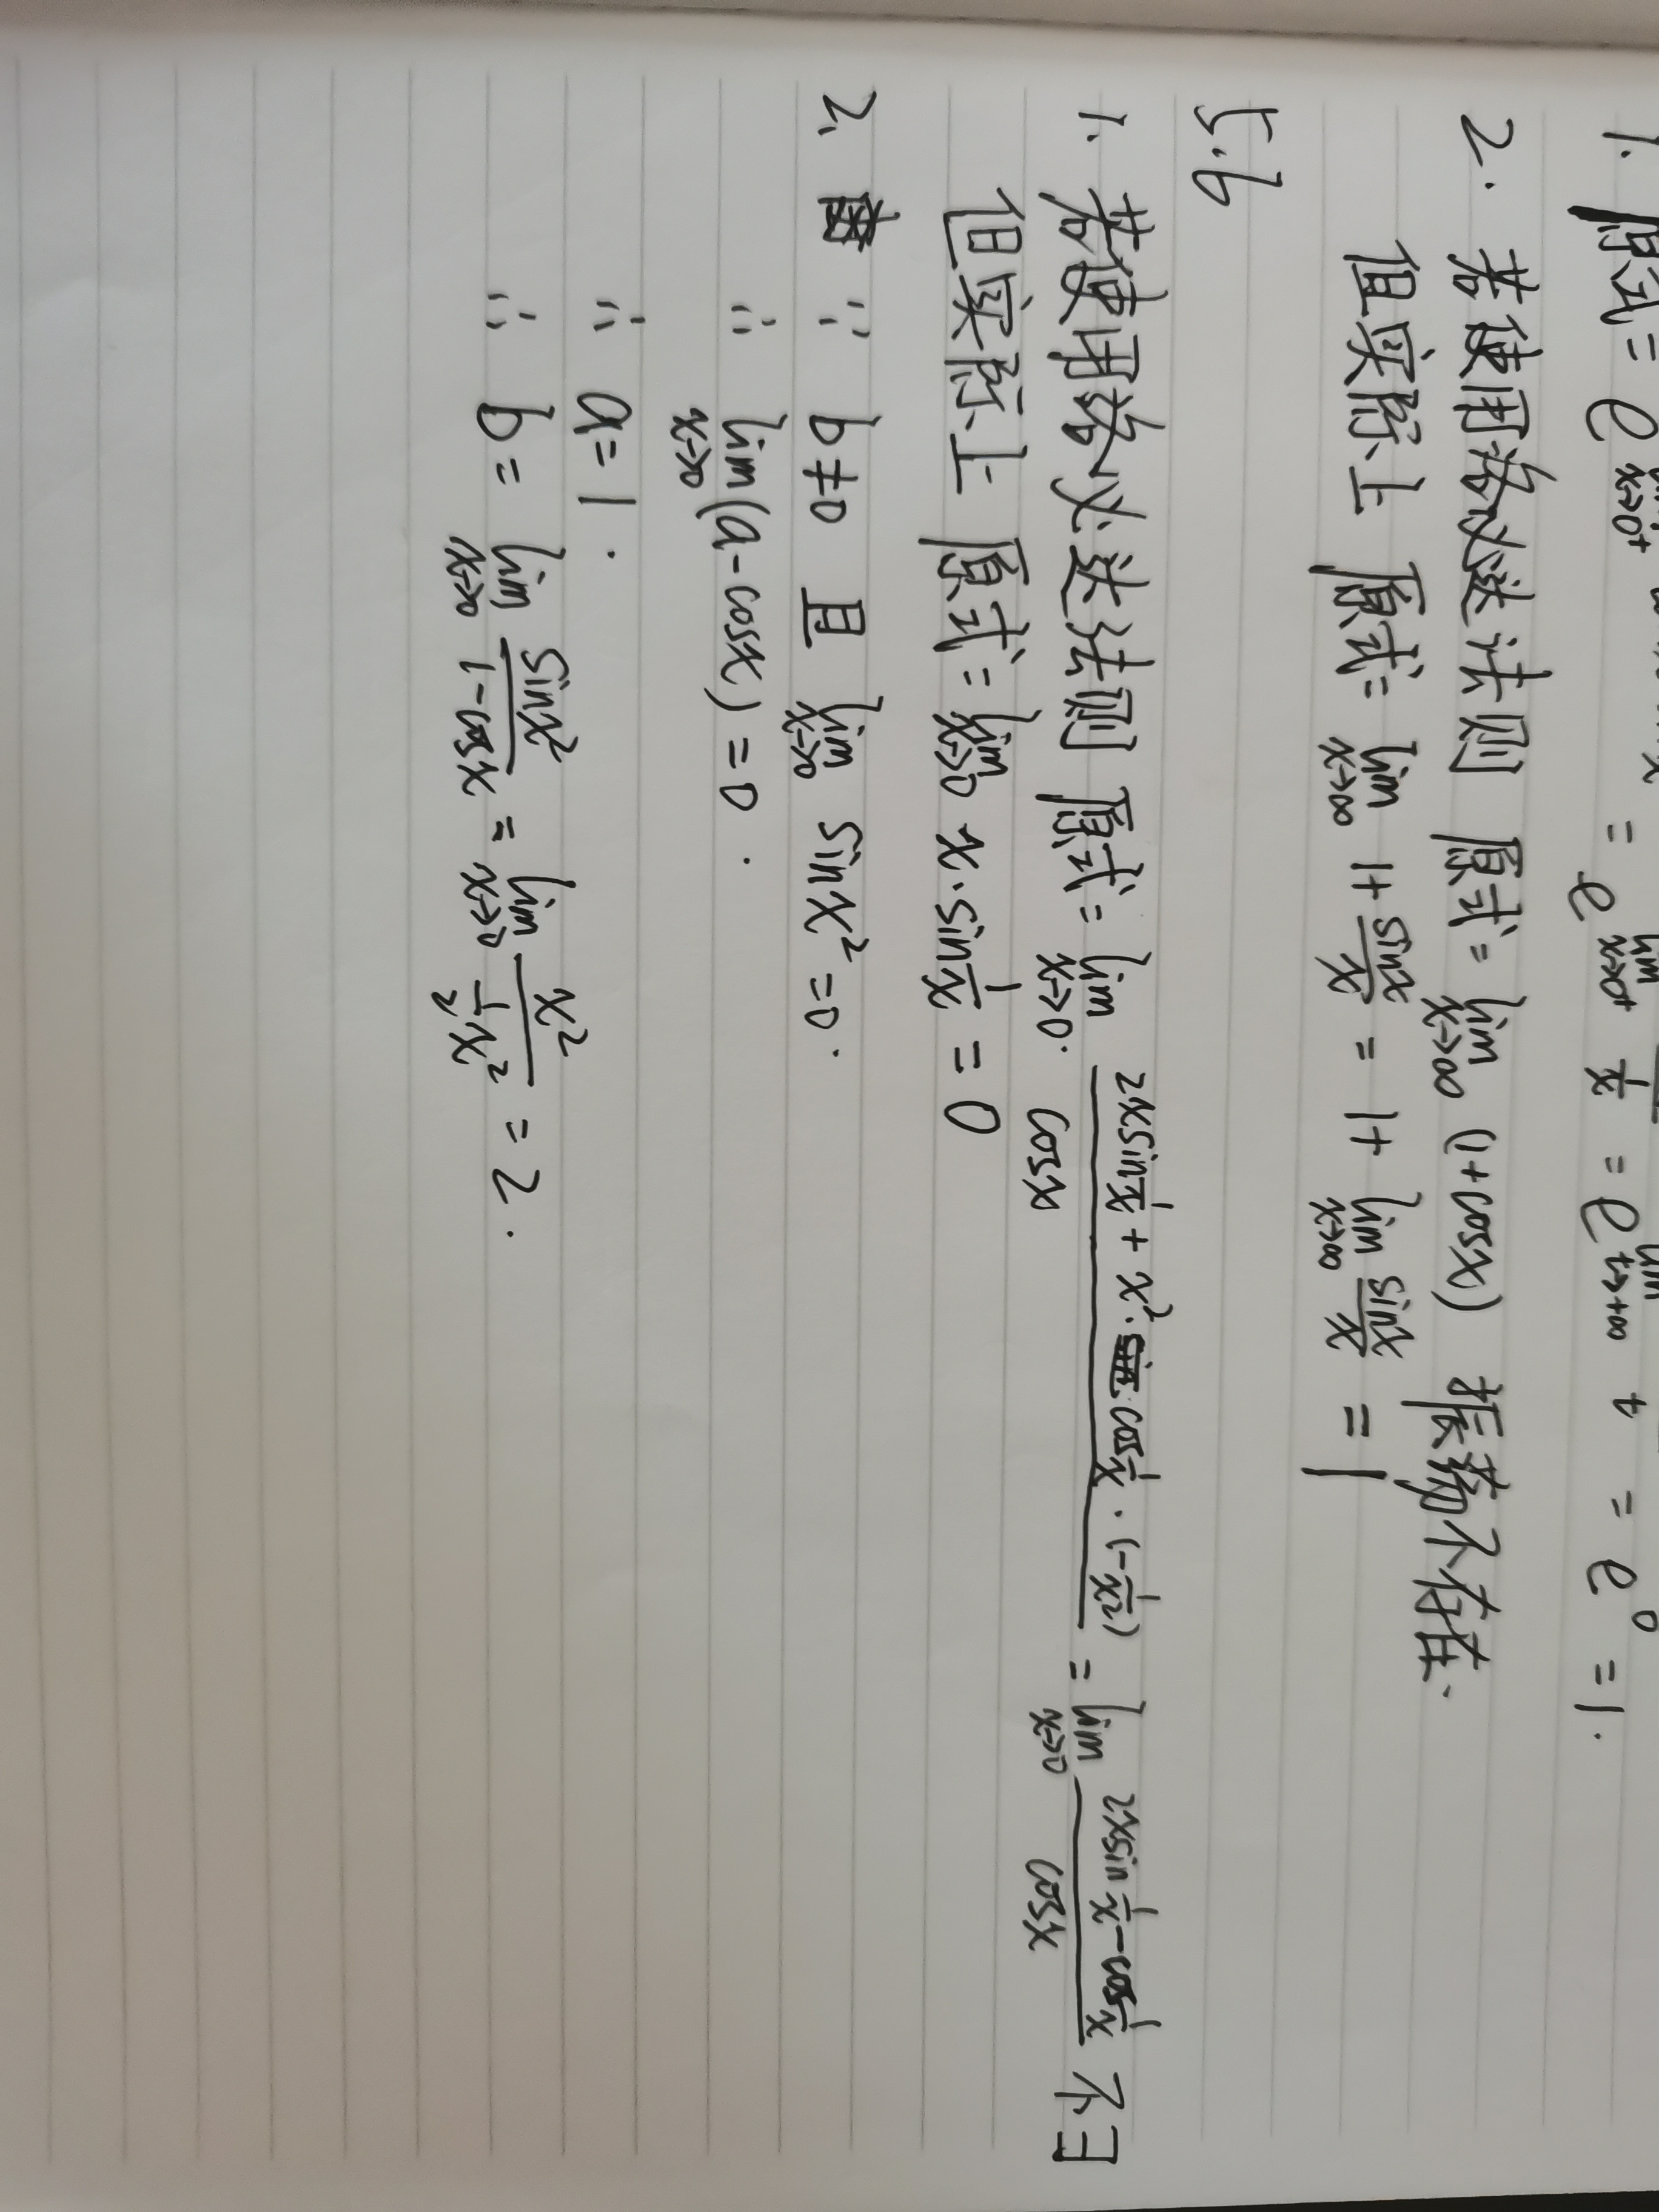 1. 原式= e^{lim x→0+ = e^{lim x→0+ 1/x = e^{lim t→+∞ t = e^0 =1.
2. 若使用洛必达法则 原式= lim x→∞ (1+cosx) 振荡不存在.
但实际上 原式= lim x→∞ 1+ sinx/x = 1+ lim x→∞ sinx/x = 1
5.6
1. 若使用洛必达法则 原式= lim x→0. (2xsin 1/x + x²· cos 1/x · (-1/x²))/cosx = lim x→0 (2xsin 1/x - cos 1/x)/cosx 不∃
但实际上 原式= lim x→0 x·sin 1/x = 0
2、 ∵ b≠0 且 lim x→0 sinx² =0.
∴ lim x→0 (a-cosx) =0 .
∴ a=1 .
∴ b= lim x→0 sinx²/(1-cosx) = lim x→0 x²/(½x²) = 2 .